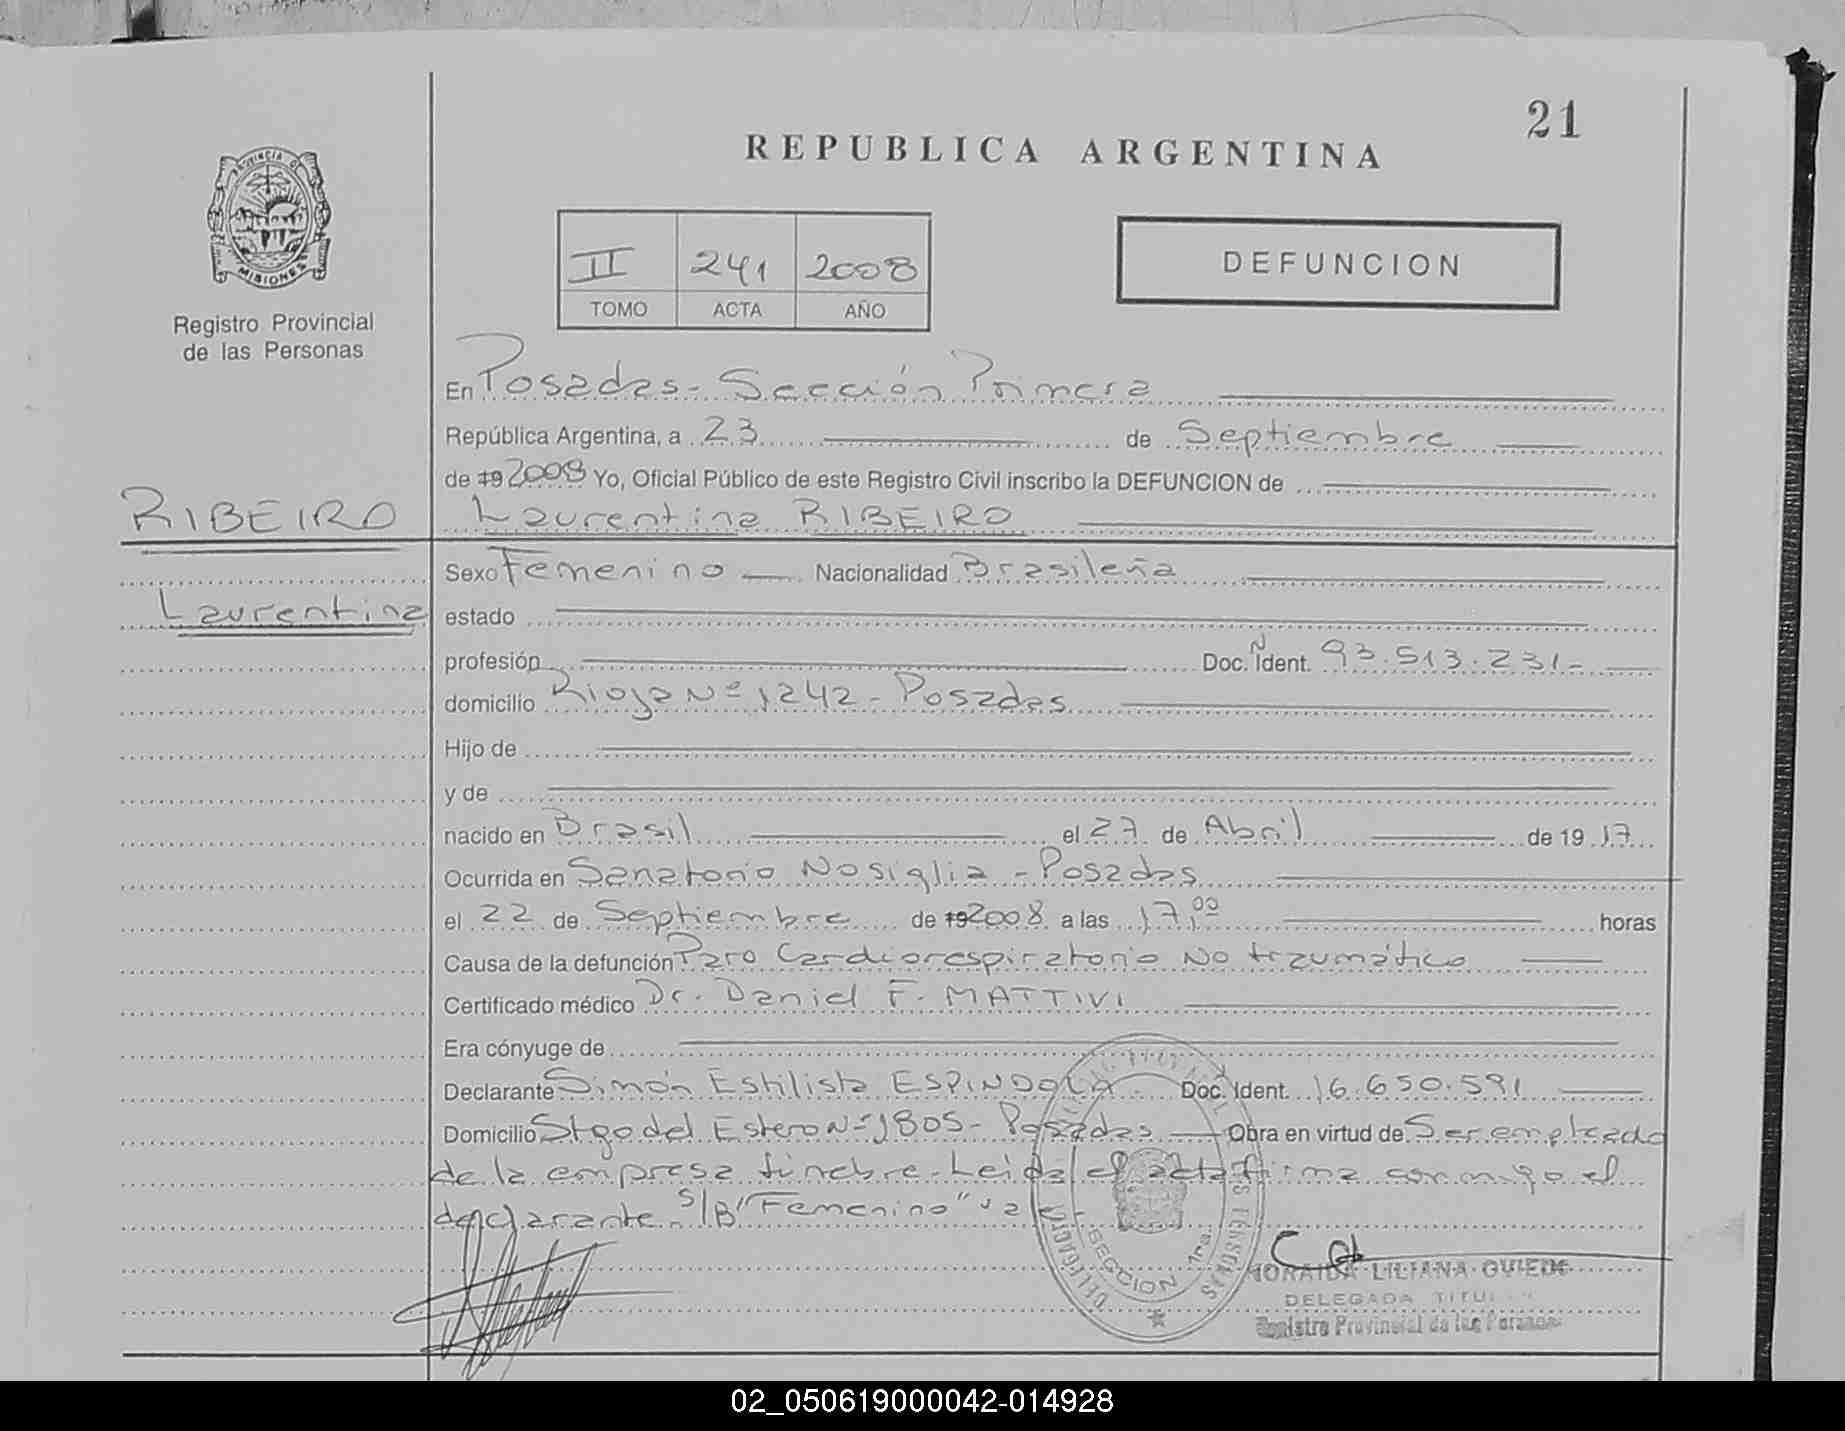 21
REPUBLICA ARGENTINA
PROVINCIA DE
MISIONES
Registro Provincial
de las Personas
II 241 2008
TOMO ACTA AÑO
DEFUNCION
En Posadas - Sección Primera
República Argentina, a 23 de Septiembre
de 19 2008 Yo, Oficial Público de este Registro Civil inscribo la DEFUNCION de
RIBEIRO
Laurentina RIBEIRO
Sexo Femenino Nacionalidad Brasileña
Laurentina
estado
profesión Doc. N Ident. 93.513.231-
domicilio Rioja Nº 1242 - Posadas
Hijo de
y de
nacido en Brasil el 27 de Abril de 19 17
Ocurrida en Sanatorio Nosiglia - Posadas
el 22 de Septiembre de 19 2008 a las 17,00 horas
Causa de la defunción Paro Cardiorespiratorio No traumático
Certificado médico Dr. Daniel F. MATTIVI
Era cónyuge de
Declarante Simón Estilista ESPINDOLA Doc. N Ident. 16.650.591
Domicilio Stgo del Estero Nº 1805 - Posadas Obra en virtud de Ser empleado
de la empresa fúnebre. Leida el acta firma conmigo el
declarante. S/B "Femenino" vale
SECCION 1ra.
LILIANA OVIEDO
DELEGADA TITU
Registro Provincial de las Personas
02_050619000042-014928